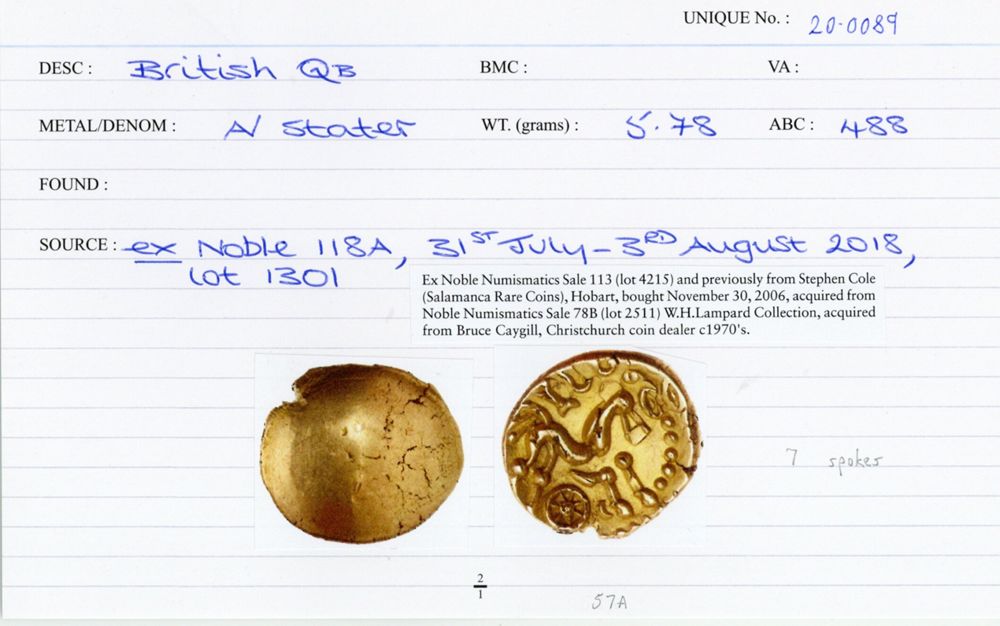 UNIQUE No. : 20·0089
DESC : British QB BMC : VA :
METAL/DENOM : AV Stater WT. (grams) : 5.78 ABC : 488
FOUND :
SOURCE : ex Noble 118A, 31ST July – 3RD August 2018,
lot 1301
Ex Noble Numismatics Sale 113 (lot 4215) and previously from Stephen Cole
(Salamanca Rare Coins), Hobart, bought November 30, 2006, acquired from
Noble Numismatics Sale 78B (lot 2511) W.H.Lampard Collection, acquired
from Bruce Caygill, Christchurch coin dealer c1970's.
7 spokes
2
1
57A